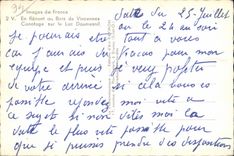 Images de France
2 V. En flânant au Bois de Vincennes
Canotage sur le Lac Daumesnil
Date du 25 Juillet
ou le 24 au soir
Je pourrais être tout à vous
car j'aurais du pour mon
équipe et puis je veux profiter
de votre si cela vous es
possible répondez moi vite a
ce sujet si non dites moi la
date le plus vite possible pour
que je puisse prendre des dispositions